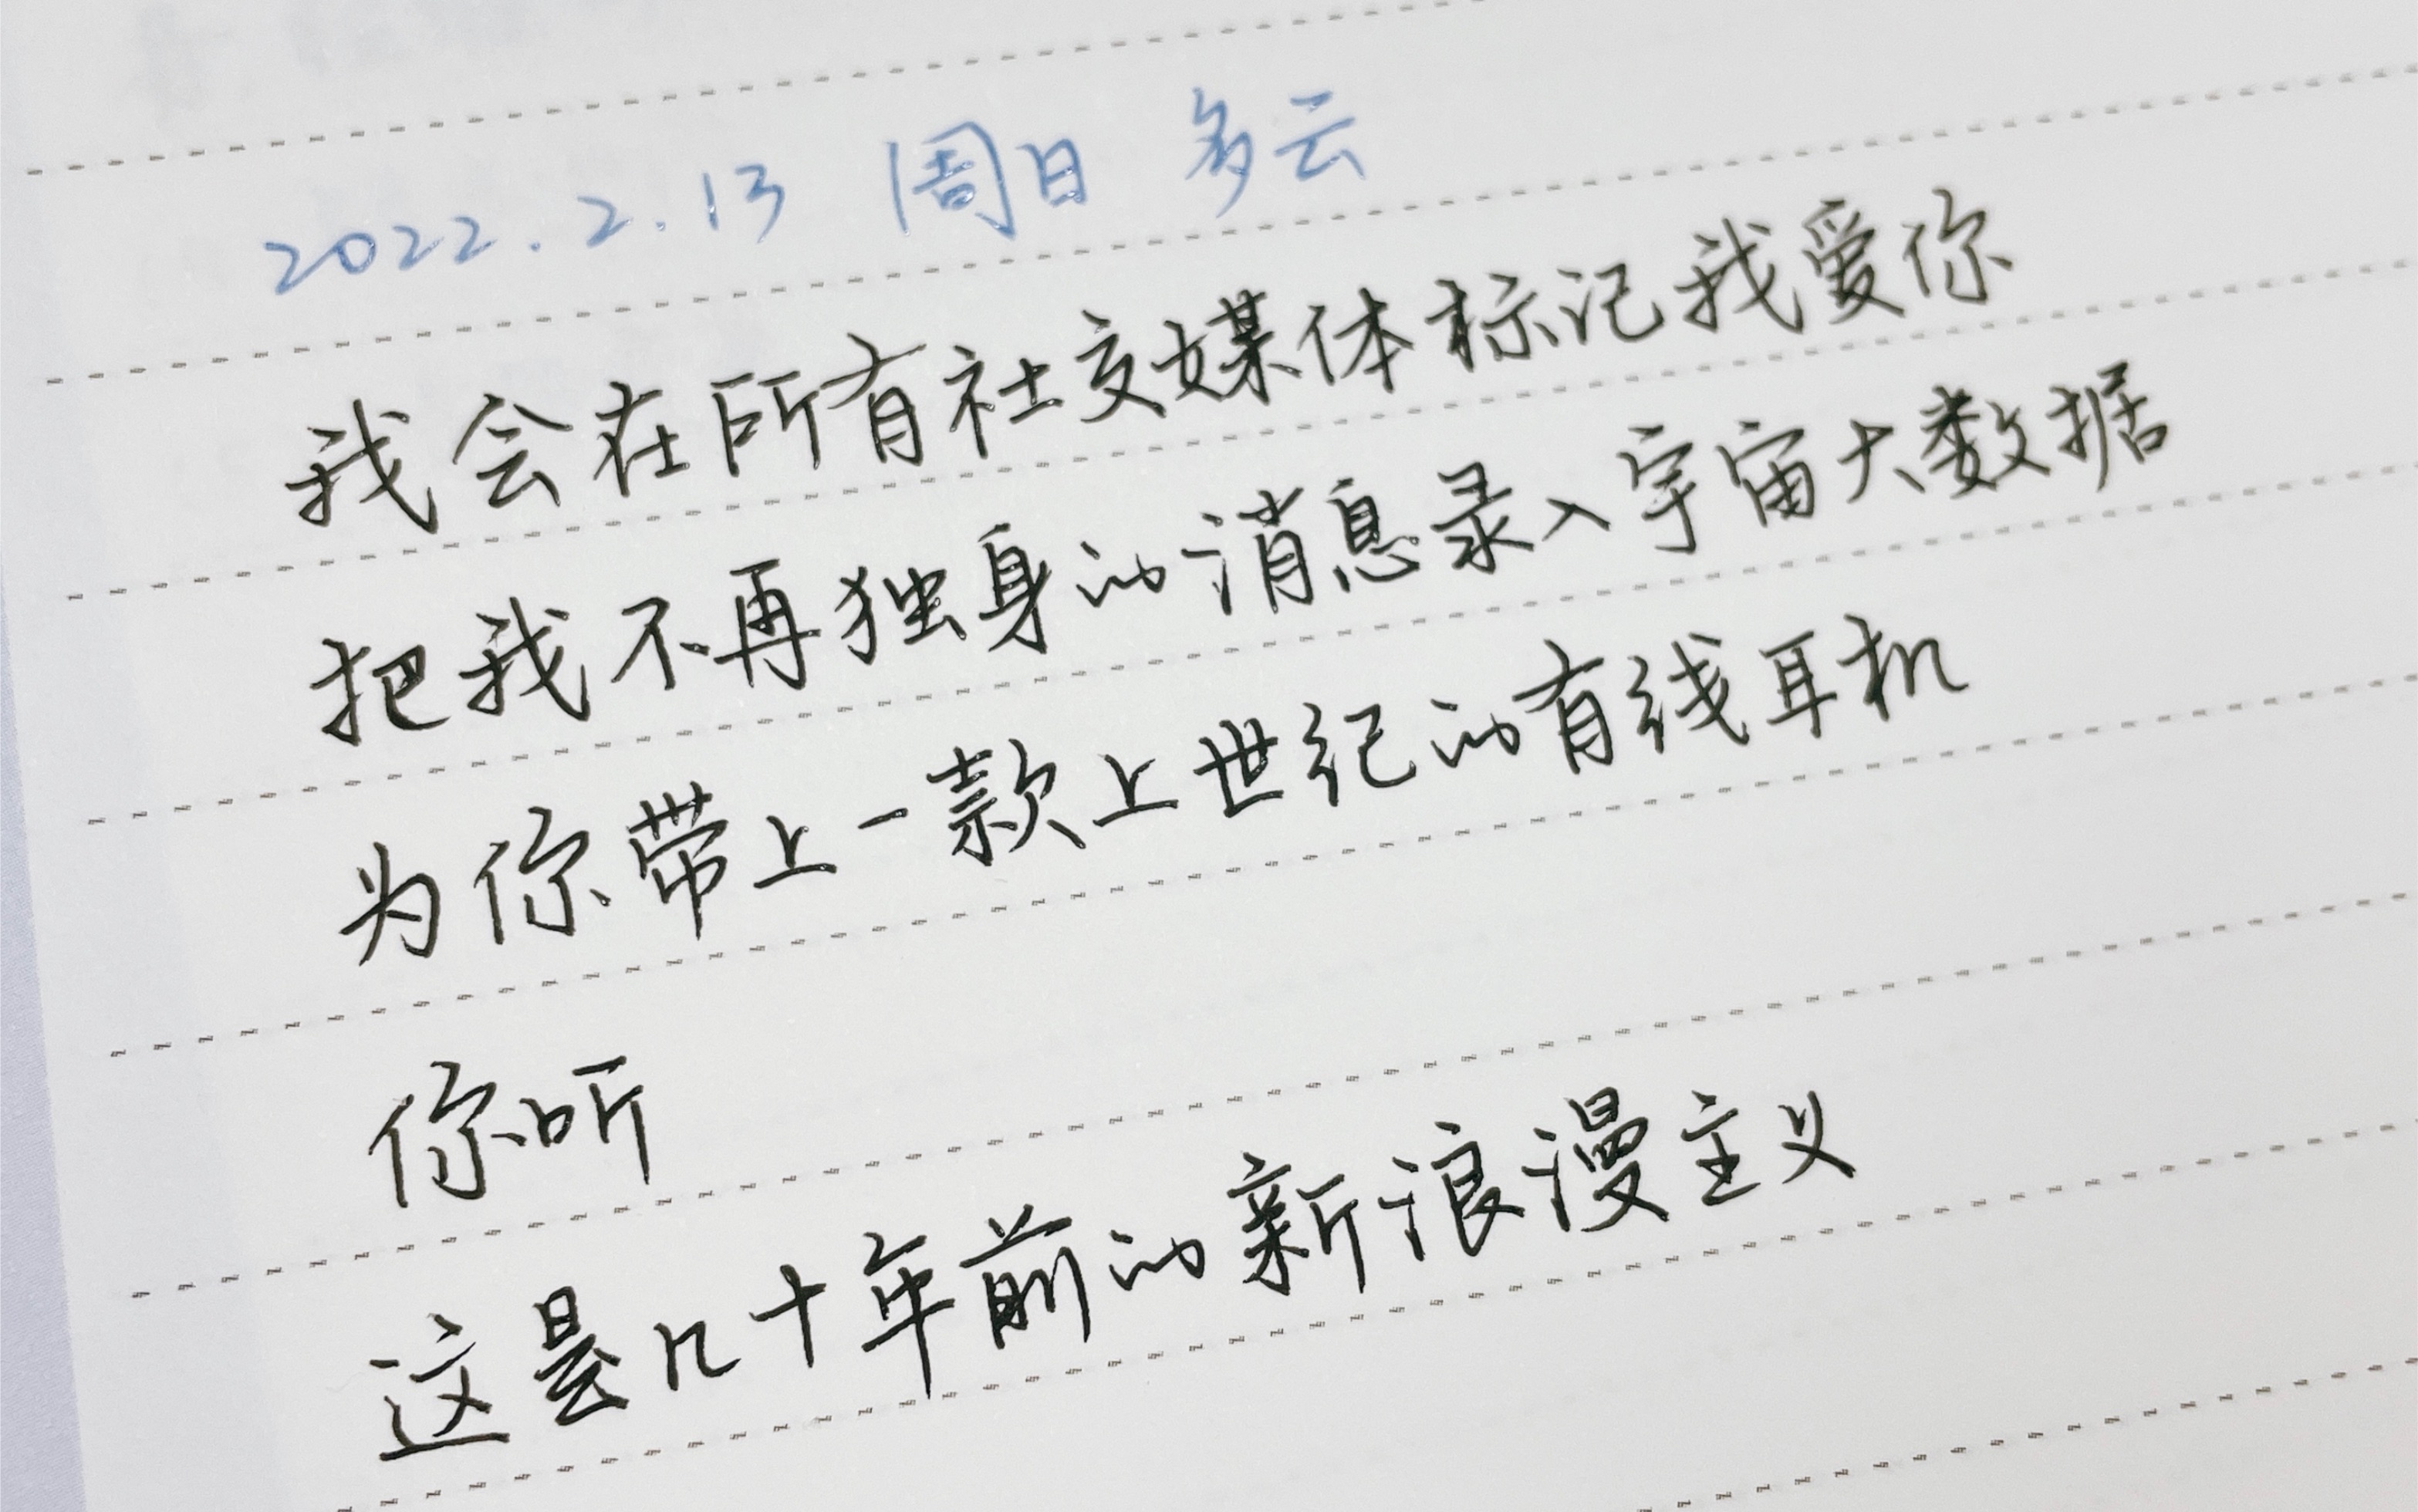 2022.2.13 周日 多云
我会在所有社交媒体标记我爱你
把我不再独身的消息录入宇宙大数据
为你带上一款上世纪的有线耳机
你听
这是几十年前的新浪漫主义